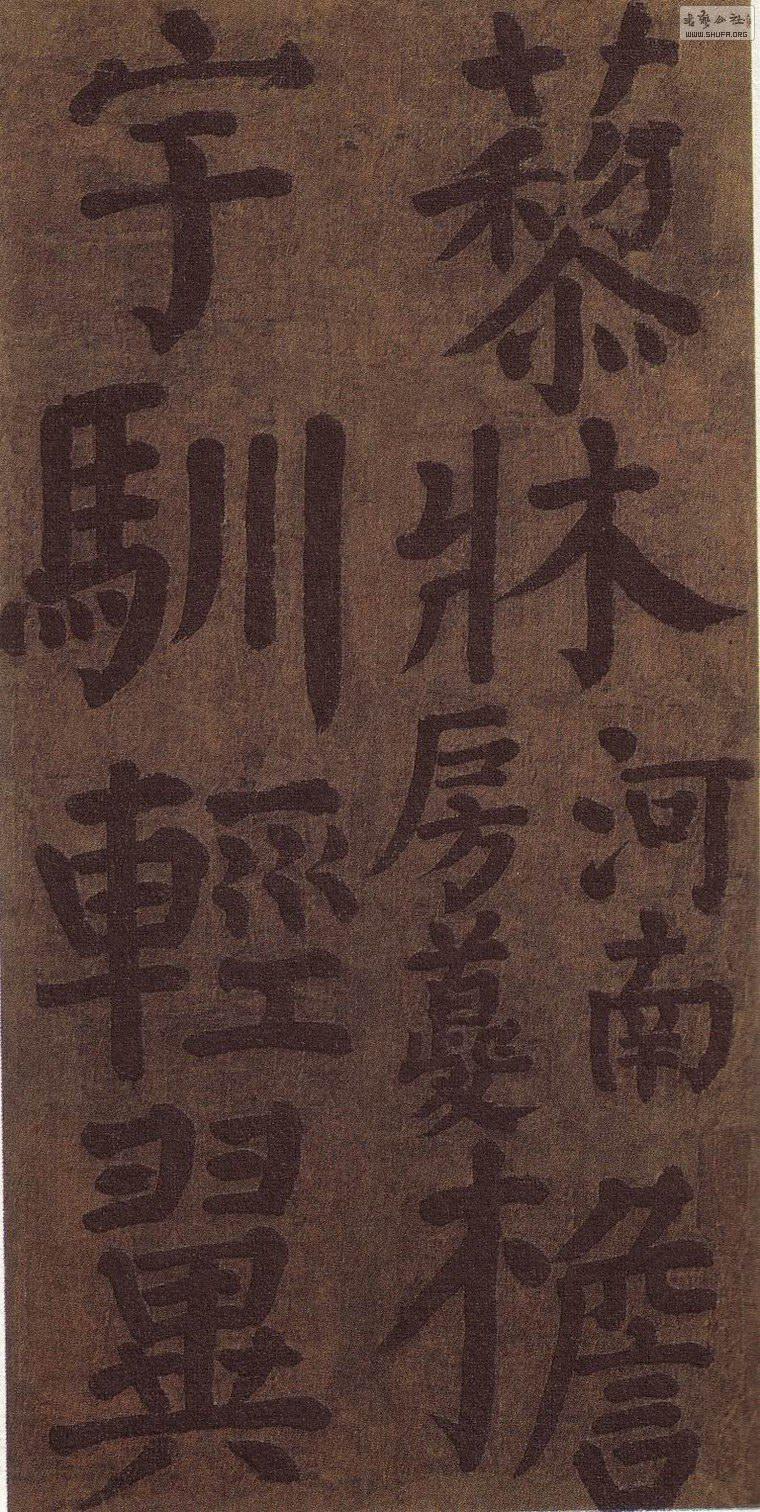 藜牀河南房夔檐
宇馴輕翼
書藝公社
WWW.SHUFA.ORG